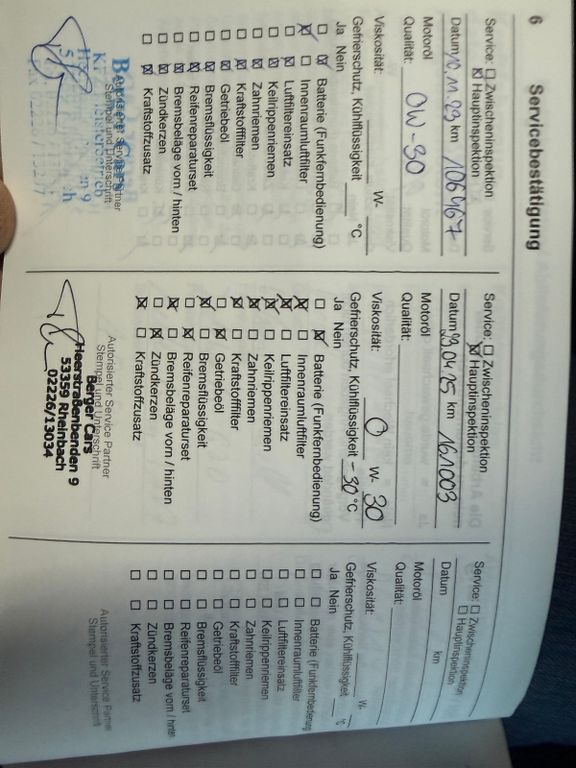 6 Servicebestätigung
Service: ☐ Zwischeninspektion
☒ Hauptinspektion
Datum 10.11.23 km 106967
Motoröl
Qualität: OW-30
Viskosität: W-
Gefrierschutz, Kühlflüssigkeit °C
Ja Nein
☐ ☒ Batterie (Funkfernbedienung)
☒ ☐ Innenraumluftfilter
☐ ☒ Luftfiltereinsatz
☐ ☒ Keilrippenriemen
☐ ☒ Zahnriemen
☐ ☒ Kraftstoffilter
☐ ☒ Getriebeöl
☐ ☒ Bremsflüssigkeit
☐ ☒ Reifenreparaturset
☐ ☒ Bremsbeläge vorn / hinten
☐ ☒ Zündkerzen
☐ ☒ Kraftstoffzusatz
Autorisierter Service Partner
Stempel und Unterschrift
Service: ☐ Zwischeninspektion
☒ Hauptinspektion
Datum 29.04.25 km 161003
Motoröl
Qualität:
Viskosität: O W- 30
Gefrierschutz, Kühlflüssigkeit -30 °C
Ja Nein
☐ ☒ Batterie (Funkfernbedienung)
☒ ☐ Innenraumluftfilter
☒ ☐ Luftfiltereinsatz
☒ ☐ Keilrippenriemen
☒ ☐ Zahnriemen
☒ ☐ Kraftstoffilter
☐ ☒ Getriebeöl
☒ ☐ Bremsflüssigkeit
☐ ☒ Reifenreparaturset
☒ ☐ Bremsbeläge vorn / hinten
☐ ☒ Zündkerzen
☒ ☐ Kraftstoffzusatz
Autorisierter Service Partner
Stempel und Unterschrift
Berger Cars
Heerstraßenbenden 9
53359 Rheinbach
02226/13034
Service: ☐ Zwischeninspektion
☐ Hauptinspektion
Datum km
Motoröl
Qualität:
Viskosität: W-
Gefrierschutz, Kühlflüssigkeit °C
Ja Nein
☐ ☐ Batterie (Funkfernbedienung
☐ ☐ Innenraumluftfilter
☐ ☐ Luftfiltereinsatz
☐ ☐ Keilrippenriemen
☐ ☐ Zahnriemen
☐ ☐ Kraftstoffilter
☐ ☐ Getriebeöl
☐ ☐ Bremsflüssigkeit
☐ ☐ Reifenreparaturset
☐ ☐ Bremsbeläge vorn / hinten
☐ ☐ Zündkerzen
☐ ☐ Kraftstoffzusatz
Autorisierter Service Partne
Stempel und Unterschrift